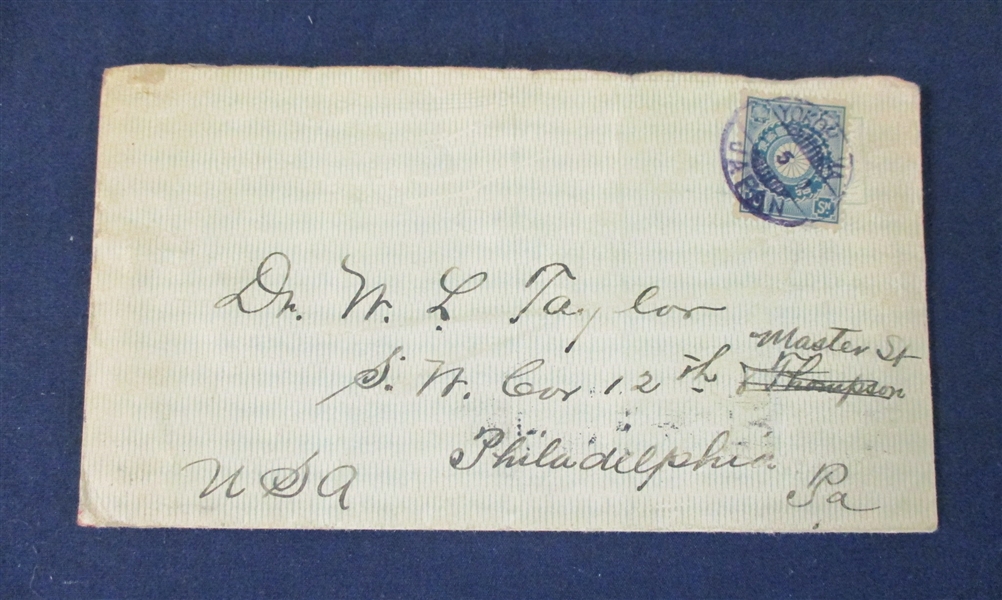 YOKOHAMA
JAPAN
5
Sn
Dr. W. L. Taylor
Master St
S. W. Cor 12th & Thompson
Philadelphia
Pa
USA